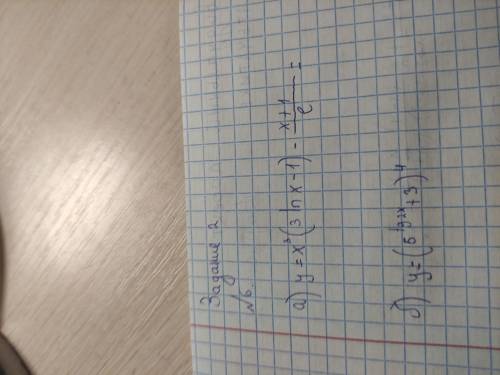 Задание 2
№6
а) y = x³(3 ln x - 1) - (x+1)/e =
б) y = (5^(tg 2x) + 3)⁴